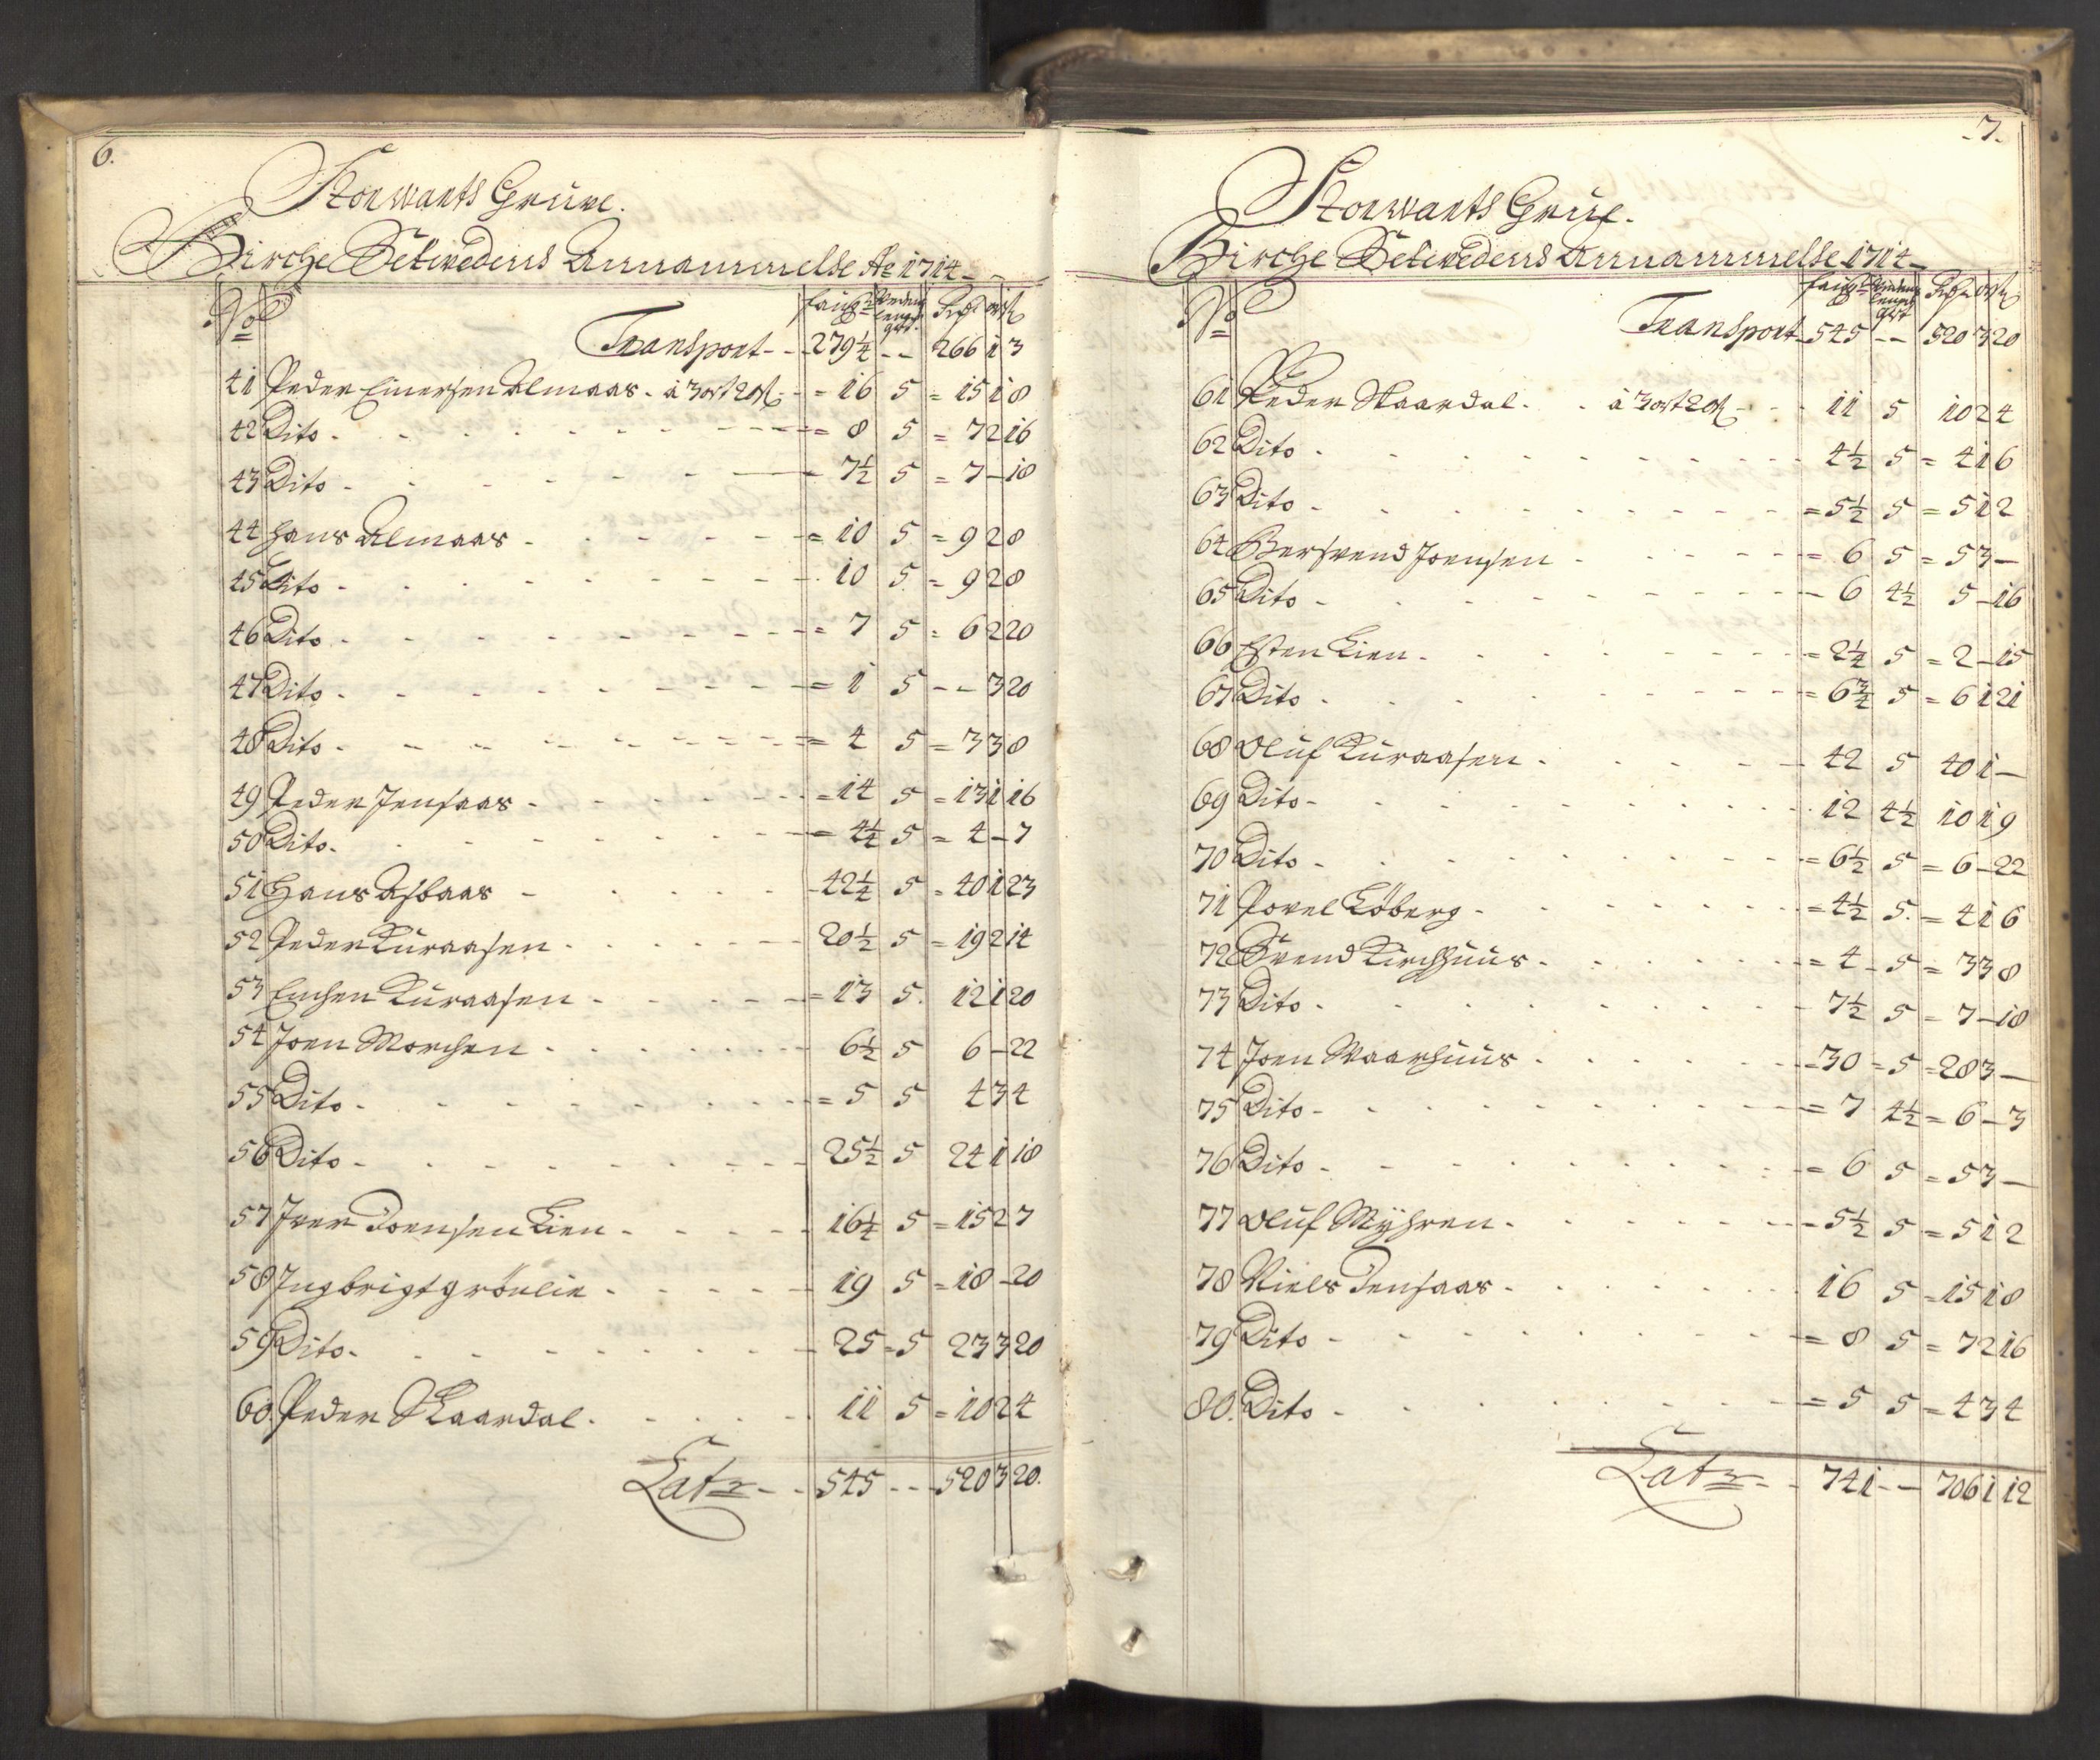 6.
Storwarts Grúve.
Birche Setivedens Annammelse Ao 1714
No
faug Vedens lengd qrt. Rdr ort ß
Transport - - 279¼ - - 266 1 3
41 Peder Einersen Almaas. à 3 ort 20 ß - = 16 5 = 15 1 8
42 Dito - = 8 5 = 7 2 16
43 Dito - 7½ 5 = 7 - 18
44 Hans Almaas - = 10 5 = 9 2 8
45 Dito - 10 5 = 9 2 8
46 Dito - = 7 5 = 6 2 20
47 Dito - = 1 5 - - 3 20
48 Dito - = 4 5 = 3 3 8
49 Peder Jensaas - = 14 5 = 13 1 16
50 Dito - = 4¼ 5 = 4 - 7
51 Hans Asbaas - 42¼ 5 = 40 1 23
52 Peder Kúraasen - 20½ 5 = 19 2 14
53 Enchen Kúraasen - = 13 5 12 1 20
54 Joen Morchen - 6½ 5 6 - 22
55 Dito - = 5 5 4 3 4
56 Dito - 25½ 5 24 1 18
57 Iver Joensen Lien - 16¼ 5 = 15 2 7
58 Ingbrigt grönlie - 19 5 = 18 - 20
59 Dito - 25 = 5 23 3 20
60. Peder Skaardal - 11 5 = 10 2 4
Latr - - 545 - - 520 3 20.
7.
Storwarts Grúe.
Birche Setivedens Annammelse 1714
No
faug Vedens lengd qrt Rdr ort ß
Transport 545 - - 520 3 20
61 Peder Skaardal - à 3 ort 20 ß - 11 5 10 2 4
62 Dito - 4½ 5 = 4 1 6
63 Dito - = 5½ 5 = 5 1 2
64 Bersvend Joensen - = 6 5 = 5 3 -
65 Dito - 6 4½ 5 - 16
66 Esten Lien - = 2¼ 5 = 2 - 15
67 Dito - = 6¾ 5 = 6 1 21
68 Olúf Kúraasen - 42 5 40 1 -
69 Dito - 12 4½ 10 1 9
70 Dito - = 6½ 5 = 6 - 22
71 Povel Koberg - = 4½ 5 = 4 1 6
72 Svend Kirchhúús - = 4 - 5 = 3 3 8
73 Dito - 7½ 5 = 7 - 18
74 Joen Waarhúús - = 30 = 5 = 28 3 -
75 Dito - = 7 4½ = 6 - 3
76 Dito - = 6 5 = 5 3 -
77 Olúf Mÿhren - 5½ 5 = 5 1 2
78 Niels Jensaas - 16 5 = 15 1 8
79 Dito - = 8 5 = 7 2 16
80. Dito - = 5 5 = 4 3 4
Latr - - 741 - - 706 1 12